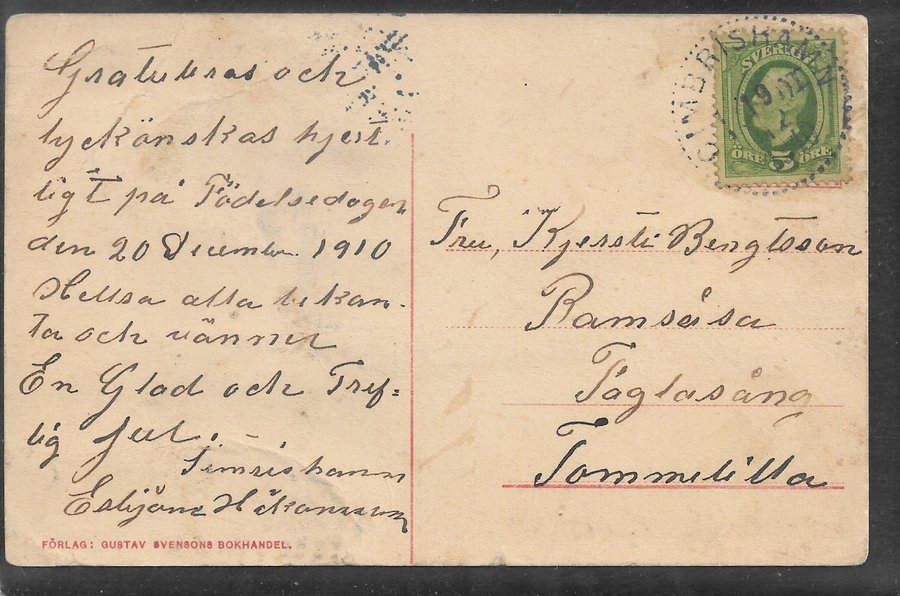 Gratuleras och
lyckönskas hjert
ligt på Födelsedagen
den 20 December 1910
Helsa alla bekan-
ta och vänner
En Glad och Tref=
lig Jul.
Simrishamn
Esbjörn Håkansson
FÖRLAG: GUSTAV SVENSONS BOKHANDEL.
CIMBRISHAMN
SVERIGE
19
ÖRE 5 ÖRE
Fru, Kjersti Bengtsson
Ramsåsa
Fåglasång
Tommelilla